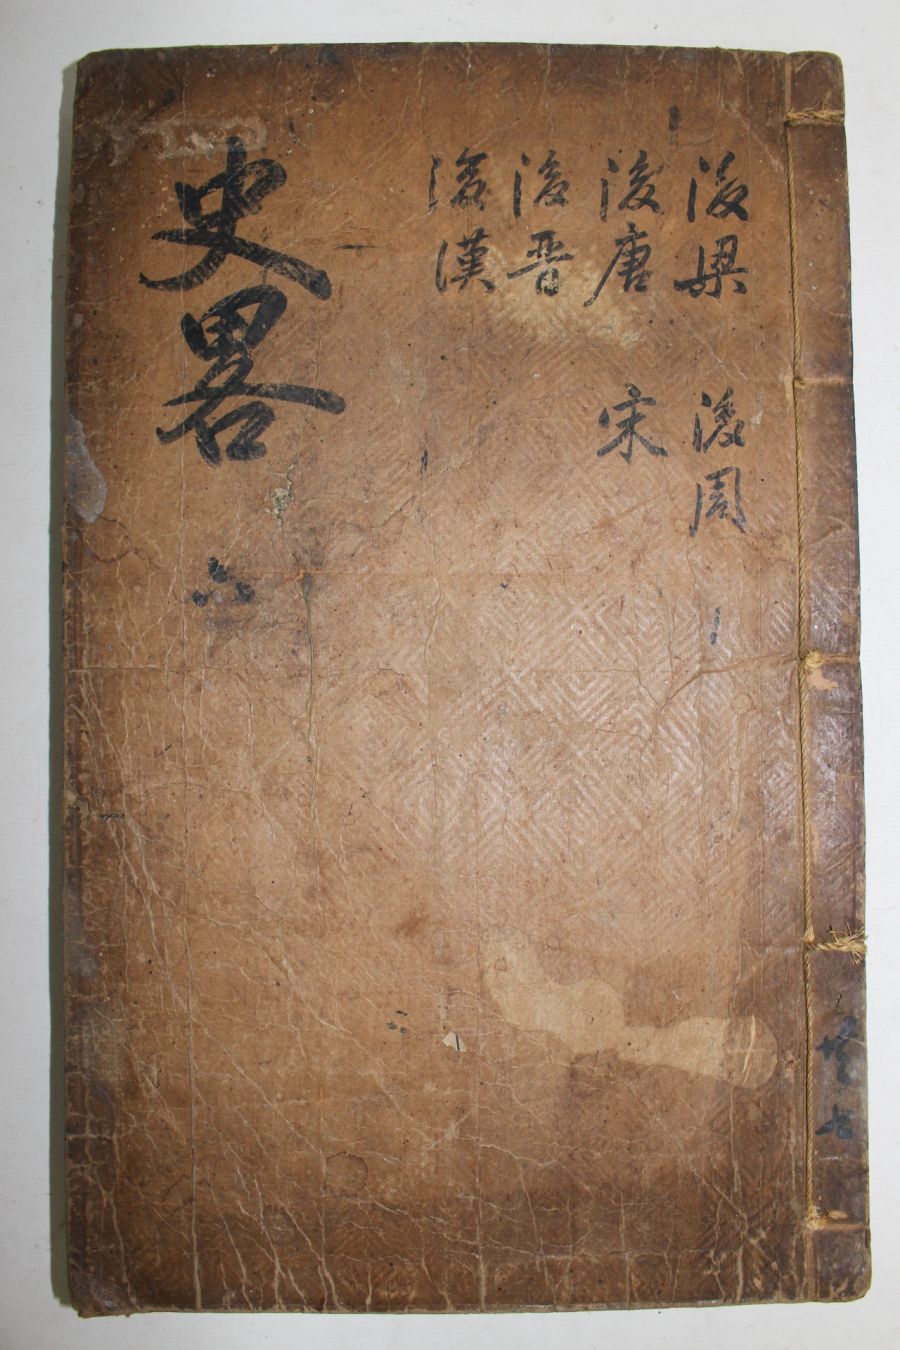 後梁
後唐
後晋
後漢
後周
宋
史畧
六
共七